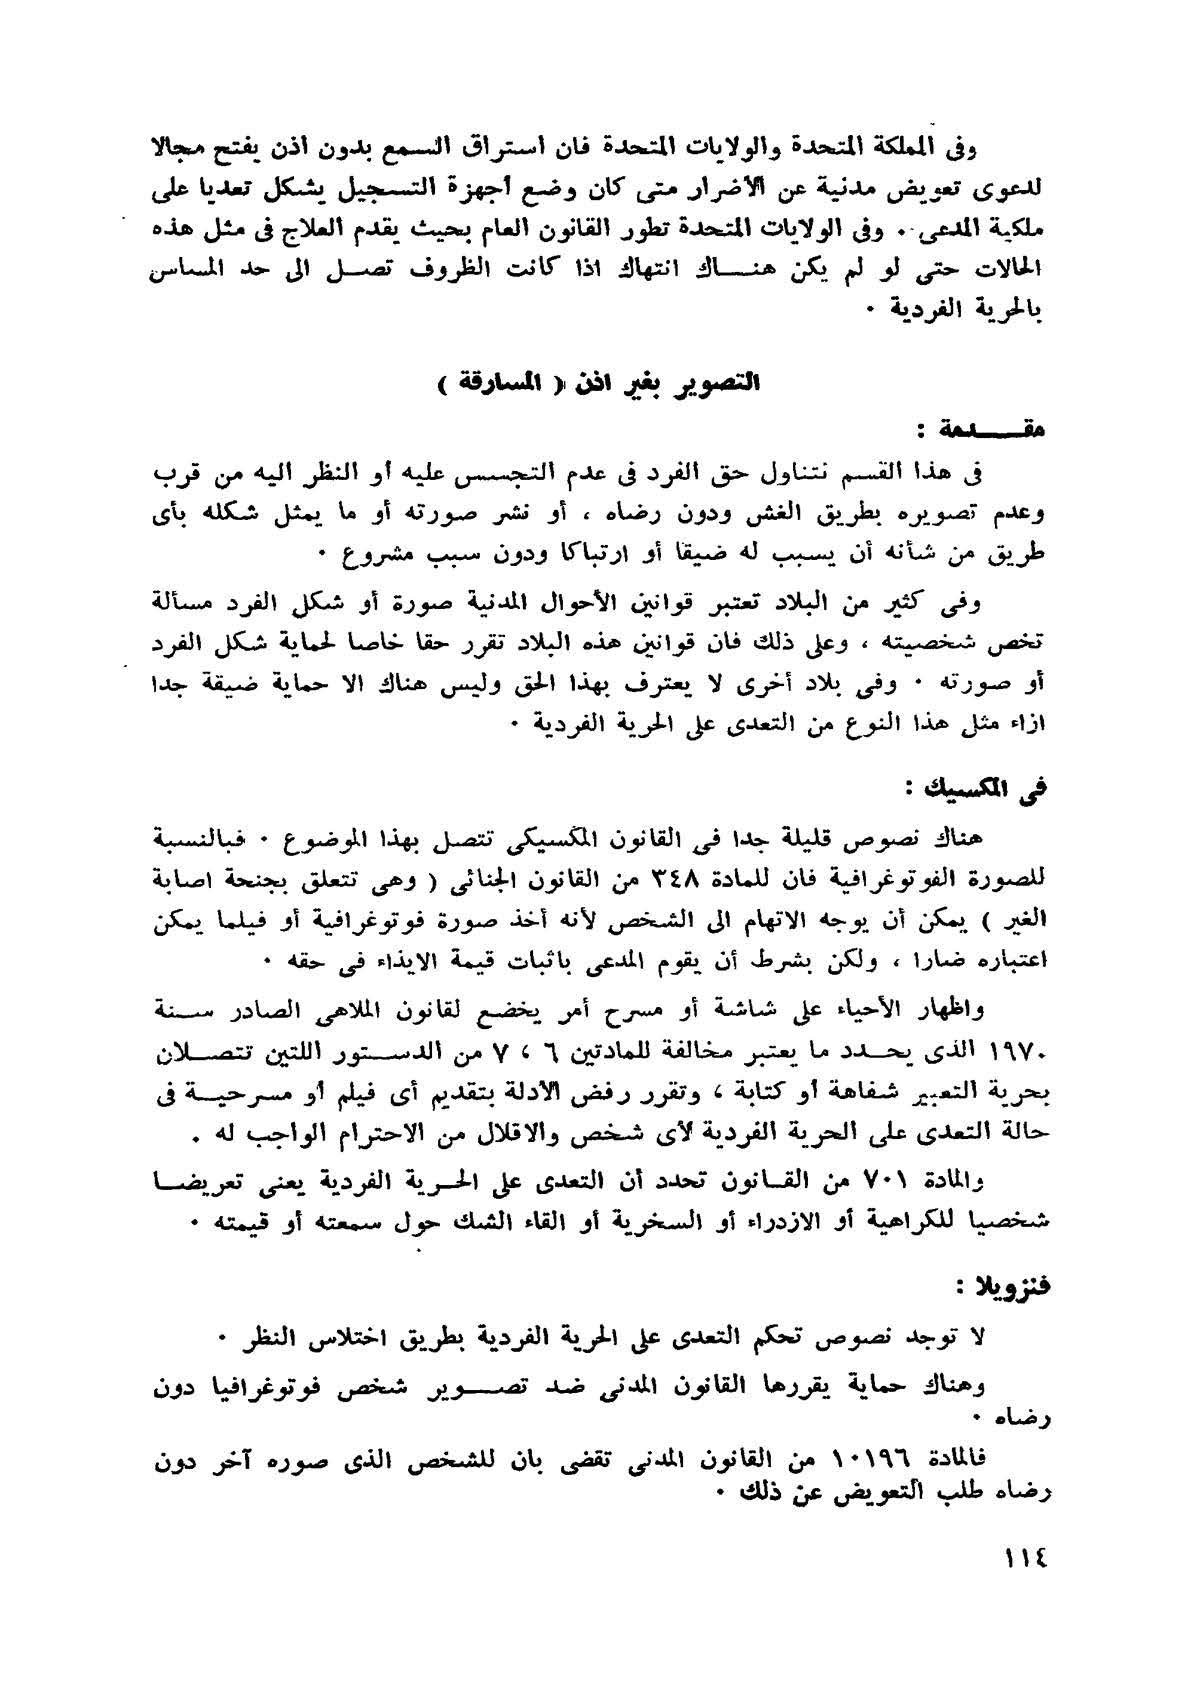 وفى المملكة المتحدة والولايات المتحدة فان استراق السمع بدون اذن يفتح مجالا
لدعوى تعويض مدنية عن الأضرار متى كان وضع أجهزة التسجيل يشكل تعديا على
ملكية المدعى ٠ وفى الولايات المتحدة تطور القانون العام بحيث يقدم العلاج فى مثل هذه
الحالات حتى لو لم يكن هنـــاك انتهاك اذا كانت الظروف تصـــل الى حد المساس
بالحرية الفردية ٠
التصوير بغير اذن ( المسارقة )
مقـــــدمة :
فى هذا القسم نتناول حق الفرد فى عدم التجسس عليه أو النظر اليه من قرب
وعدم تصويره بطريق الغش ودون رضاه ، أو نشر صورته أو ما يمثل شكله بأى
طريق من شأنه أن يسبب له ضيقا أو ارتباكا ودون سبب مشروع ٠
وفى كثير من البلاد تعتبر قوانين الأحوال المدنية صورة أو شكل الفرد مسألة
تخص شخصيته ، وعلى ذلك فان قوانين هذه البلاد تقرر حقا خاصا لحماية شكل الفرد
أو صورته ٠ وفى بلاد أخرى لا يعترف بهذا الحق وليس هناك الا حماية ضيقة جدا
ازاء مثل هذا النوع من التعدى على الحرية الفردية ٠
فى المكسيك :
هناك نصوص قليلة جدا فى القانون المكسيكى تتصل بهذا الموضوع ٠ فبالنسبة
للصورة الفوتوغرافية فان للمادة ٣٤٨ من القانون الجنائى ( وهى تتعلق بجنحة اصابة
الغير ) يمكن أن يوجه الاتهام الى الشخص لأنه أخذ صورة فوتوغرافية أو فيلما يمكن
اعتباره ضارا ، ولكن بشرط أن يقوم المدعى باثبات قيمة الايذاء فى حقه ٠
واظهار الأحياء على شاشة أو مسرح أمر يخضع لقانون الملاهى الصادر ســنة
١٩٧٠ الذى يحــدد ما يعتبر مخالفة للمادتين ٦ ، ٧ من الدســتور اللتين تتصــلان
بحرية التعبير شفاهة أو كتابة ، وتقرر رفض الأدلة بتقديم أى فيلم أو مسرحيــة فى
حالة التعدى على الحرية الفردية لأى شخص والاقلال من الاحترام الواجب له .
والمادة ٧٠١ من القــانون تحدد أن التعدى على الحــرية الفردية يعنى تعريضــا
شخصيا للكراهية أو الازدراء أو السخرية أو القاء الشك حول سمعته أو قيمته ٠
فنزويلا :
لا توجد نصوص تحكم التعدى على الحرية الفردية بطريق اختلاس النظر ٠
وهناك حماية يقررها القانون المدنى ضد تصـــوير شخص فوتوغرافيا دون
رضاه ٠
فالمادة ١٠١٩٦ من القانون المدنى تقضى بان للشخص الذى صوره آخر دون
رضاه طلب التعويض عن ذلك ٠
١١٤